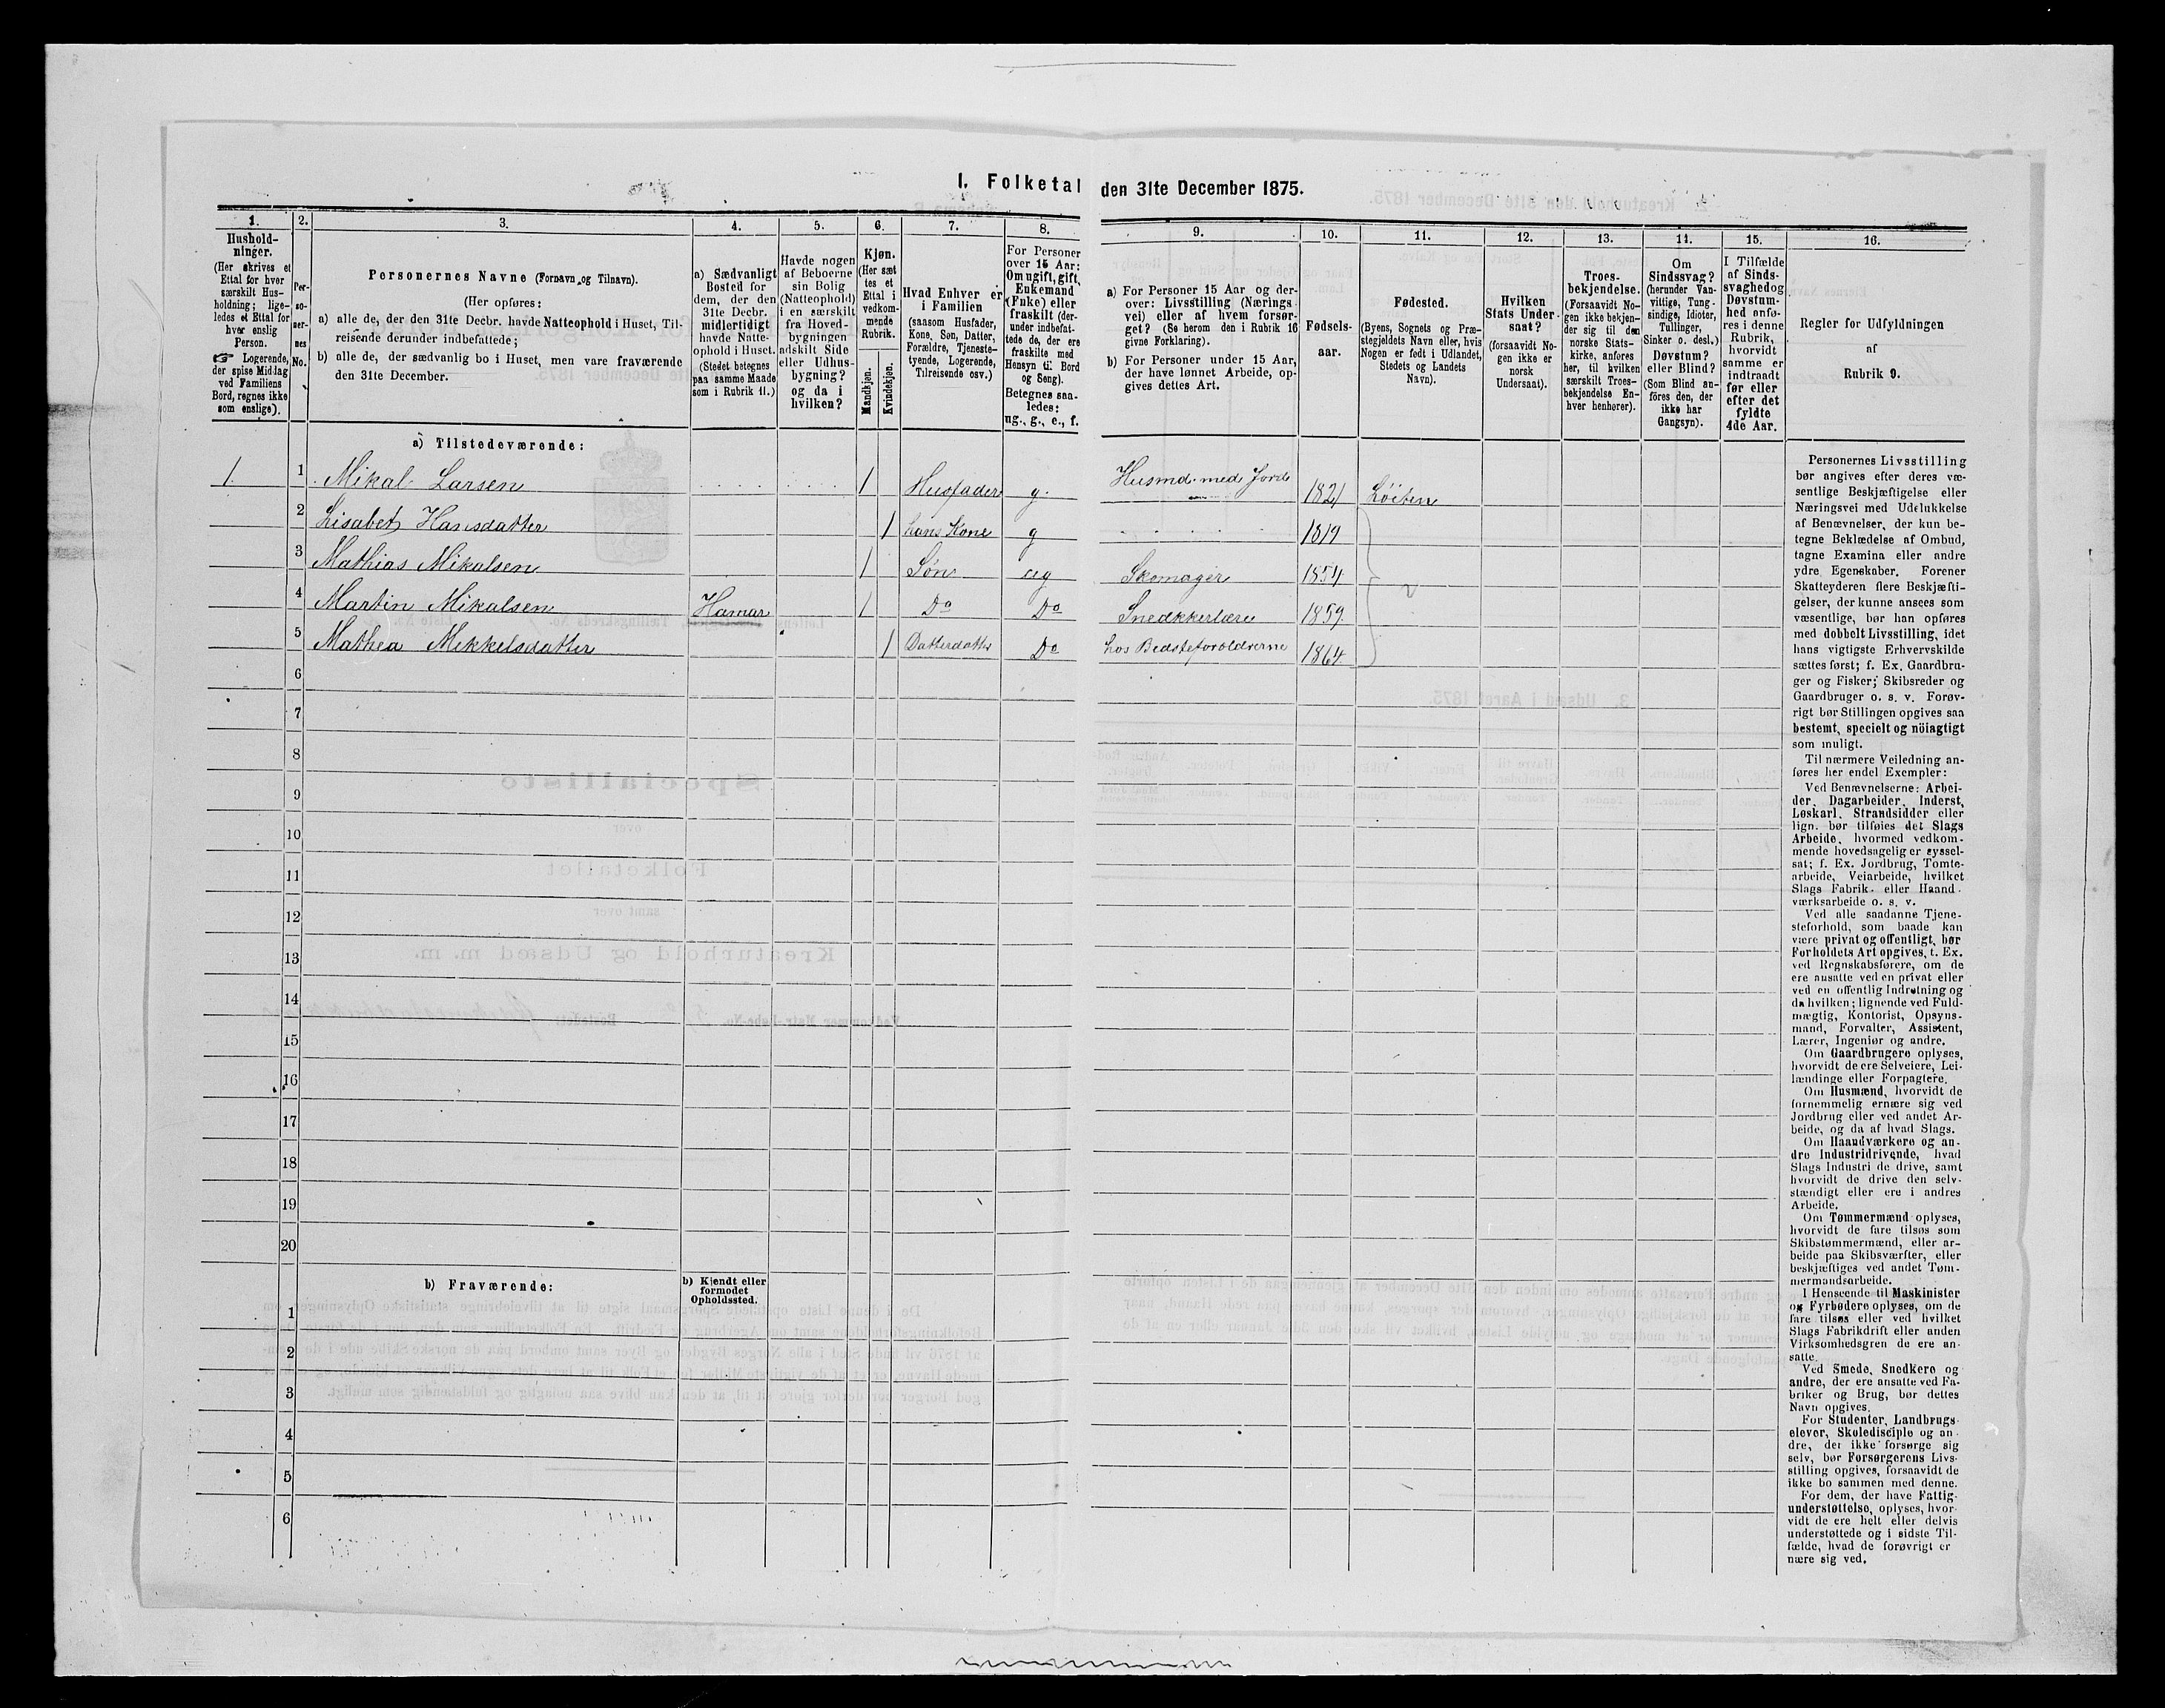 I. Folketal den 31te December 1875.
1.
Hushold-
ninger.
(Her skrives et
Ettal for hver
særskilt Hus-
holdning; lige-
ledes et Ettal for
hver enslig
Person.
☞ Logerende,
der spise Middag
ved Familiens
Bord, regnes ikke
som enslige).
2.
Per-
so-
ner-
nes
No.
3.
Personernes Navne (Fornavn og Tilnavn).
(Her opføres:
a) alle de, der den 31te Decbr. havde Natteophold i Huset, Til-
reisende derunder indbefattede;
b) alle de, der sædvanlig bo i Huset, men vare fraværende
den 31te December.
4.
a) Sædvanligt
Bosted for
dem, der den
31te Decbr.
midlertidigt
havde Natte-
ophold i Huset.
(Stedet betegnes
paa samme Maade
som i Rubrik 11.)
5.
Havde nogen
af Beboerne
sin Bolig
(Natteophold)
i en særskilt
fra Hoved-
bygningen
adskilt Side
eller Udhus-
bygning?
og da i
hvilken?
6.
Kjøn.
(Her sæt
tes et
Ettal i
vedkom-
mende
Rubrik.
Mandkjøn.
Kvindekjøn.
7.
Hvad Enhver er
i Familien
(saasom Husfader,
Kone, Søn, Datter,
Forældre, Tjeneste-
tyende, Logerende,
Tilreisende osv.)
8.
For Personer
over 15 Aar:
Om ugift, gift,
Enkemand
(Enke) eller
fraskilt (der-
under indbefat-
tede de, der ere
fraskilte med
Hensyn til Bord
og Seng).
Betegnes saa-
ledes:
ug., g., e., f.
9.
a) For Personer 15 Aar og der-
over: Livsstilling (Nærings
vei) eller af hvem forsør-
get? (Se herom den i Rubrik 16
givne Forklaring).
b) For Personer under 15 Aar,
der have lønnet Arbeide, op-
gives dettes Art.
10.
Fødsels-
aar.
11.
Fødested.
(Byens, Sognets og Præ-
stegjeldets Navn eller, hvis
Nogen er født i Udlandet,
Stedets og Landets
Navn).
12.
Hvilken
Stats Under-
saat?
(forsaavidt No-
gen ikke er
norsk
Undersaat).
13.
Troes-
bekjendelse.
(Forsaavidt No-
gen ikke bekjen-
der sig til den
norske Stats-
kirke, anføres
her, til hvilken
særskilt Troes-
bekjendelse En-
hver henhører).
14.
Om
Sindssvag?
(herunder Van-
vittige, Tung-
sindige, Idioter,
Tullinger,
Sinker o. desl.)
Døvstum?
eller Blind?
(Som Blind an-
føres den, der
ikke har
Gangsyn).
15.
I Tilfælde
af Sinds-
svaghed og
Døvstum-
hed anfø-
res i denne
Rubrik,
hvorvidt
samme er
indtraadt
før eller
efter det
fyldte
4de Aar.
16.
Regler for Udfyldningen
af
Rubrik 9.
a) Tilstedeværende:
1 1 Mikal Larsen 1 Husfader g. Husmd. med Jord 1821 Löiten
2 Lisabet Hansdatter 1 hans Kone g 1819
3 Mathias Mikalsen 1 Søn ug Skomager 1854
4 Martin Mikalsen Hamar 1 Do Do Snedkkerlære 1859
5 Mathea Mikkelsdatter 1 Datterdatter Do hos Bedsteforoldrerne 1864
6
7
8
9
10
11
12
13
14
15
16
17
18
19
20
b) Fraværende:
b) Kjendt eller
formodet
Opholdssted.
1
2
3
4
5
6
Personernes Livsstilling
bør angives efter deres væ-
sentlige Beskjæftigelse eller
Næringsvei med Udelukkelse
af Benævnelser, der kun be-
tegne Beklædelse af Ombud,
tagne Examina eller andre
ydre Egenskaber. Forener
Skatteyderen flere Beskjæfti-
gelser, der kunne ansees som
væsentlige, bør han opføres
med dobbelt Livsstilling, idet
hans vigtigste Erhvervskilde
sættes først; f. Ex. Gaardbru-
ger og Fisker; Skibsreder og
Gaardbruger o. s. v. Forøv-
rigt bør Stillingen opgives saa
bestemt, specielt og nöiagtigt
som muligt.
Til nærmere Veiledning an-
føres her endel Exempler:
Ved Benævnelserne: Arbei-
der, Dagarbeider, Inderst,
Løskarl, Strandsidder eller
lign. bør tilføies det Slags
Arbeide, hvormed vedkom-
mende hovedsagelig er syssel-
sat; f. Ex. Jordbrug, Tomte-
arbeide, Veiarbeide, hvilket
Slags Fabrik- eller Haand-
værksarbeide o. s. v.
Ved alle saadanne Tjene-
steforhold, som baade kan
være privat og offentligt, bør
Forholdets Art opgives, t. Ex.
ved Regnskabsførere, om de
ere ansatte ved en privat eller
ved en offentlig Indretning og
da hvilken; lignende ved Fuld-
mægtig, Kontorist, Opsyns-
mand, Forvalter, Assistent,
Lærer, Ingeniør og andre.
Om Gaardbrugere oplyses,
hvorvidt de ere Selveiere, Lei-
lændinge eller Forpagtere.
Om Husmænd, hvorvidt de
fornemmelig ernære sig ved
Jordbrug eller ved andet Ar-
beide, og da af hvad Slags.
Om Haandværkere og an-
dre Industridrivende, hvad
Slags Industri de drive, samt
hvorvidt de drive den selv-
stændigt eller ere i andres
Arbeide.
Om Tømmermænd oplyses,
hvorvidt de fare tilsøs som
Skibstømmermænd, eller ar-
beide paa Skibsværfter, eller
beskjæftiges ved andet Tøm-
mermandsarbeide.
I Henseende til Maskinister
og Fyrbødere oplyses, om de
fare tilsøs eller ved hvilket
Slags Fabrikdrift eller anden
Virksomhedsgren de ere an-
satte.
Ved Smede, Snedkere og
andre, der ere ansatte ved Fa-
briker og Brug, bør dettes
Navn opgives.
For Studenter, Landbrugs-
elever, Skoledisciple og an-
dre, der ikke forsørge sig
selv, bør Forsørgerens Livs-
stilling opgives, forsaavidt de
ikke bo sammen med denne.
For dem, der have Fattig-
understøttelse, oplyses, hvor-
vidt de ere helt eller delvis
understøttede og i sidste Til-
fælde, hvad de forøvrigt er
nære sig ved.